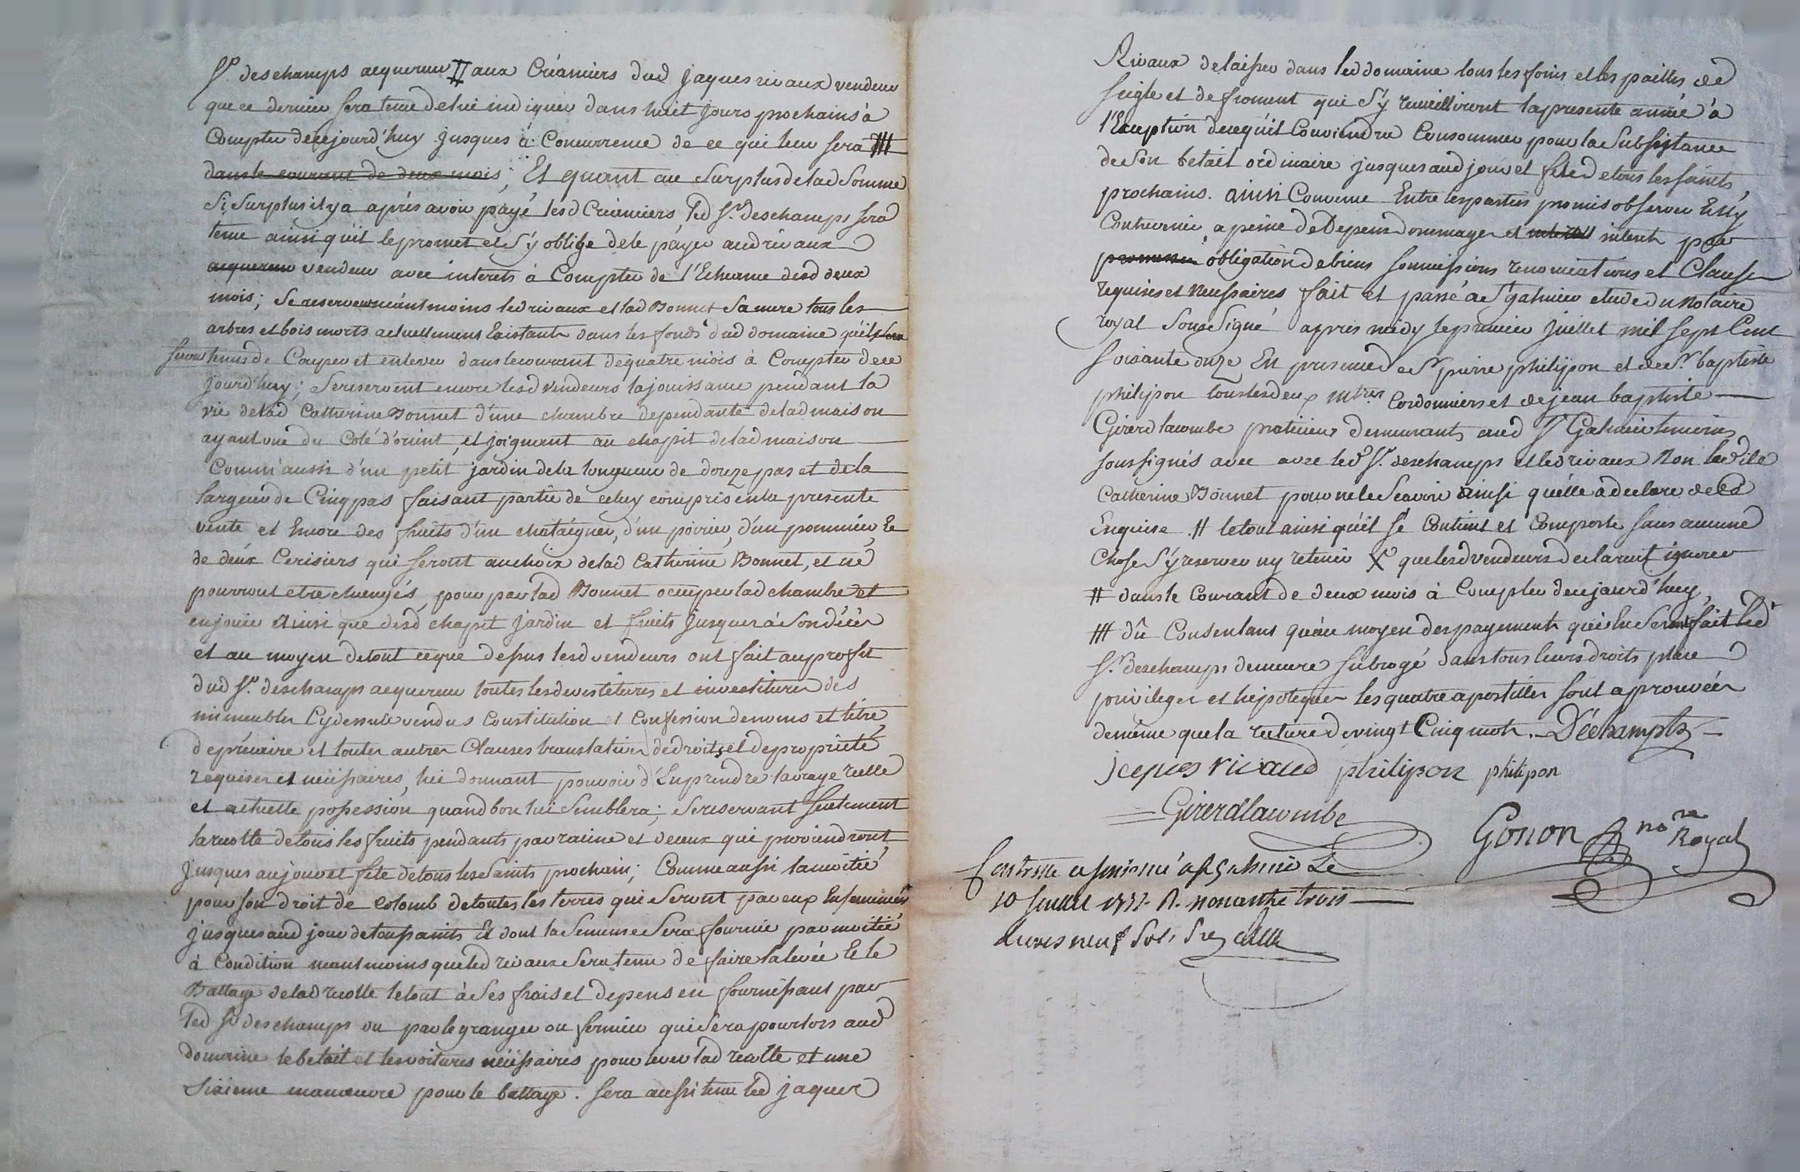 Sr. deschamps acquereur # aux Créanciers dud jaques rivaux vendeur
que ce dernier sera tenu de lui indiquer dans huit jours prochains à
Compter decejourd'huy jusques à Concurrence de ce qui leur sera ###
dans le courant de deux mois; Et quant au Surplus de lad Somme
Si Surplus il y a aprés avoir payé lesd Créanciers led Sr. deschamps sera
tenu ainsi quil le promet et s'y oblige de le páyer aud rivaux
acquereur vendeur avec interets à Compter de l'Echeance desd deux
mois; Se reservent néantmoins led rivaux et lad Bonnet sa mere tous les
arbres et bois morts actuellement Existants dans les fonds dud domaine qu'ils
seront tenus de Couper et enlever dans le courant de quatre mois à Compter de ce
jourd'huy; Se reservent encore lesd vendeurs la jouissance pendant la
vie de lad Catherine Bonnet d'une chambre dependante de lad maison
ayant vue du Coté d'orient, et joignant au chapit de lad maison
Comm'aussi d'un petit jardin de la longueur de douze pas et de la
largeur de Cinq pas faisant partie de celuy compris en la presente
vente et Encore des fruits d'un chataigner, d'un poirier, d'un pommier, Ee
de deux Cerisiers qui seront au choix de lad Catherine Bonnet, et né
pourront etre changés, pour par lad Bonnet occuper lad chambre et
en jouir ainsi que desd chapit jardin et fruits jusques à Son décér
et au moyen de tout ce que dessus lesd vendeurs ont fait au profit
dud Sr. deschamps acquereur toutes les devestitures et investitures des
immeubles Cydessus vendus Constitution et Confession de noms et titre
de précaire et toutes autres Clauses translatives de droits et de proprieté
requises et néésſaires, lui donnant pouvoir d'En prendre la vraye réelle
et actuelle possession quand bon lui Semblera; Se reservant seulement
la récolte de tous les fruits pendants par racine et de ceux qui proviendront
jusques au jour et féte de tous les Saints prochain; Comme aussi la moitié
pour son droit de Colomb de toutes les terres qui Seront par eux Ensemencées
jusques aud jour de toussaints Et dont la Semence Sera fournie par moitié
à Condition neantmoins que led rivaux Sera tenu de faire la levée Et le
Battage de lad recolte le tout à Ses frais et depens en fournissant par
led Sr. deschamps ou par le granger ou fermier qui Sera pour lors aud
domaine le betail et les voitures néésſaires pour lever lad recolte et une
Sixieme manœuvre pour le battage. Sera aussi tenu led jaques
Rivaux delaisser dans led domaine tous les foins et les pailles de
seigle et de froment qui s'y receuilliront la presente année à
l'Exception de ce qu'il Conviendra Consommer pour la Subsistance
de Son betail ordinaire jusques aud jour et féte de tous les saints
prochains. ainsi Convenu Entre les parties promis observer Et n'y
Contrevenir, a peine de Depens dommages et interets par
obligation de biens soumissions renonciations et Clauses
requises et neessaires fait et passé a St galmier etude du Notaire
royal Soussigné après midy le premier juillet mil sept Cent
soixante onze En presence de Sr. pierre philipon et de Sr. baptiste
philipon tous les deux mtres Cordonniers et de jean baptiste
Girerd lacombe praticien demeurants aud St Galmier temoins
soussignés avec led Sr. deschamps et led rivaux Non lad
Catherine Bonnet pour ne le Scavoir ainsi qu'elle a declare de ce
Enquise. # le tout ainsi qu'il Se Contient et Comporte sans aucune
Chose s'y reserver ny retenir X que lesd vendeurs declarent ignorer
# dans le Courant de deux mois à Compter decejourd'huy,
### dû Consentant qu'au moyen des payements qui leur Seront fait led
Sr. deschamps demeure subrogé dans tous leurs droits place
privileges et hipoteques les quatre apostilles sont aprouvées
de même que la rature de vingt Cinq mots. Déchamps
jcques rivaud philipon philipon
Girerdlacombe
Gonon nore Royal
Controllé et a St Galmier Le
10 Juillet 1771. R. nonante trois
Livres neuf Sols